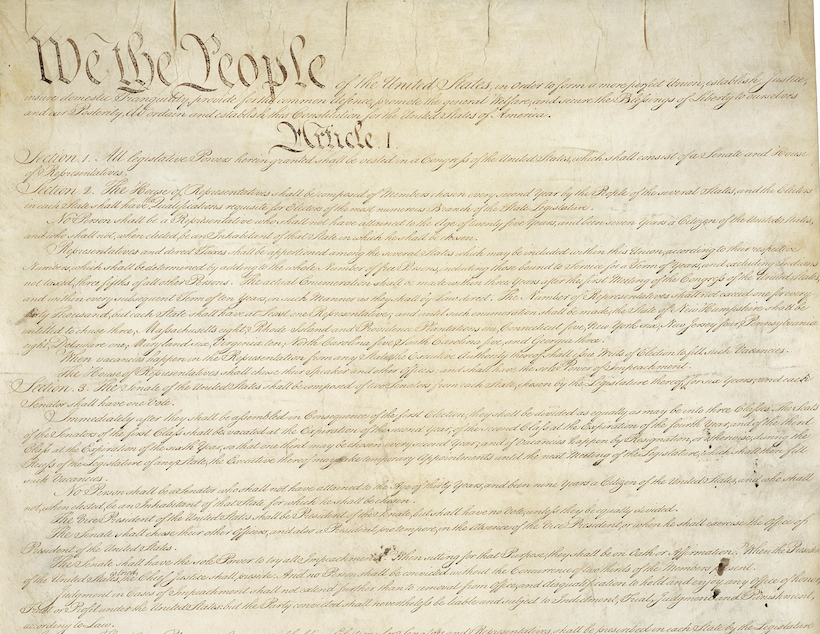 We the People of the United States, in Order to form a more perfect Union, establish Justice,
insure domestic Tranquility, provide for the common defence, promote the general Welfare, and secure the Blessings of Liberty to ourselves
and our Posterity, do ordain and establish this Constitution for the United States of America.
Article. I.
Section. 1. All legislative Powers herein granted shall be vested in a Congress of the United States, which shall consist of a Senate and House
of Representatives.
Section. 2. The House of Representatives shall be composed of Members chosen every second Year by the People of the several States, and the Electors
in each State shall have the Qualifications requisite for Electors of the most numerous Branch of the State Legislature.
No Person shall be a Representative who shall not have attained to the Age of twenty five Years, and been seven Years a Citizen of the United States,
and who shall not, when elected, be an Inhabitant of that State in which he shall be chosen.
Representatives and direct Taxes shall be apportioned among the several States which may be included within this Union, according to their respective
Numbers, which shall be determined by adding to the whole Number of free Persons, including those bound to Service for a Term of Years, and excluding Indians
not taxed, three fifths of all other Persons. The actual Enumeration shall be made within three Years after the first Meeting of the Congress of the United States,
and within every subsequent Term of ten Years, in such Manner as they shall by Law direct. The Number of Representatives shall not exceed one for every
thirty Thousand, but each State shall have at Least one Representative; and until such enumeration shall be made, the State of New Hampshire shall be
entitled to chuse three, Massachusetts eight, Rhode Island and Providence Plantations one, Connecticut five, New York six, New Jersey four, Pennsylvania
eight, Delaware one, Maryland six, Virginia ten, North Carolina five, South Carolina five, and Georgia three.
When vacancies happen in the Representation from any State, the Executive Authority thereof shall issue Writs of Election to fill such Vacancies.
The House of Representatives shall chuse their Speaker and other Officers; and shall have the sole Power of Impeachment.
Section. 3. The Senate of the United States shall be composed of two Senators from each State, chosen by the Legislature thereof, for six Years; and each
Senator shall have one Vote.
Immediately after they shall be assembled in Consequence of the first Election, they shall be divided as equally as may be into three Classes. The Seats
of the Senators of the first Class shall be vacated at the Expiration of the second Year, of the second Class at the Expiration of the fourth Year, and of the third
Class at the Expiration of the sixth Year, so that one third may be chosen every second Year; and if Vacancies happen by Resignation, or otherwise, during the
Recess of the Legislature of any State, the Executive thereof may make temporary Appointments until the next Meeting of the Legislature, which shall then fill
such Vacancies.
No Person shall be a Senator who shall not have attained to the Age of thirty Years, and been nine Years a Citizen of the United States, and who shall
not, when elected, be an Inhabitant of that State for which he shall be chosen.
The Vice President of the United States shall be President of the Senate, but shall have no Vote, unless they be equally divided.
The Senate shall chuse their other Officers, and also a President pro tempore, in the Absence of the Vice President, or when he shall exercise the Office of
President of the United States.
The Senate shall have the sole Power to try all Impeachments. When sitting for that Purpose, they shall be on Oath or Affirmation. When the President
of the United States is tried, the Chief Justice shall preside: And no Person shall be convicted without the Concurrence of two thirds of the Members present.
Judgment in Cases of Impeachment shall not extend further than to removal from Office, and disqualification to hold and enjoy any Office of honor,
Trust or Profit under the United States: but the Party convicted shall nevertheless be liable and subject to Indictment, Trial, Judgment and Punishment,
according to Law.